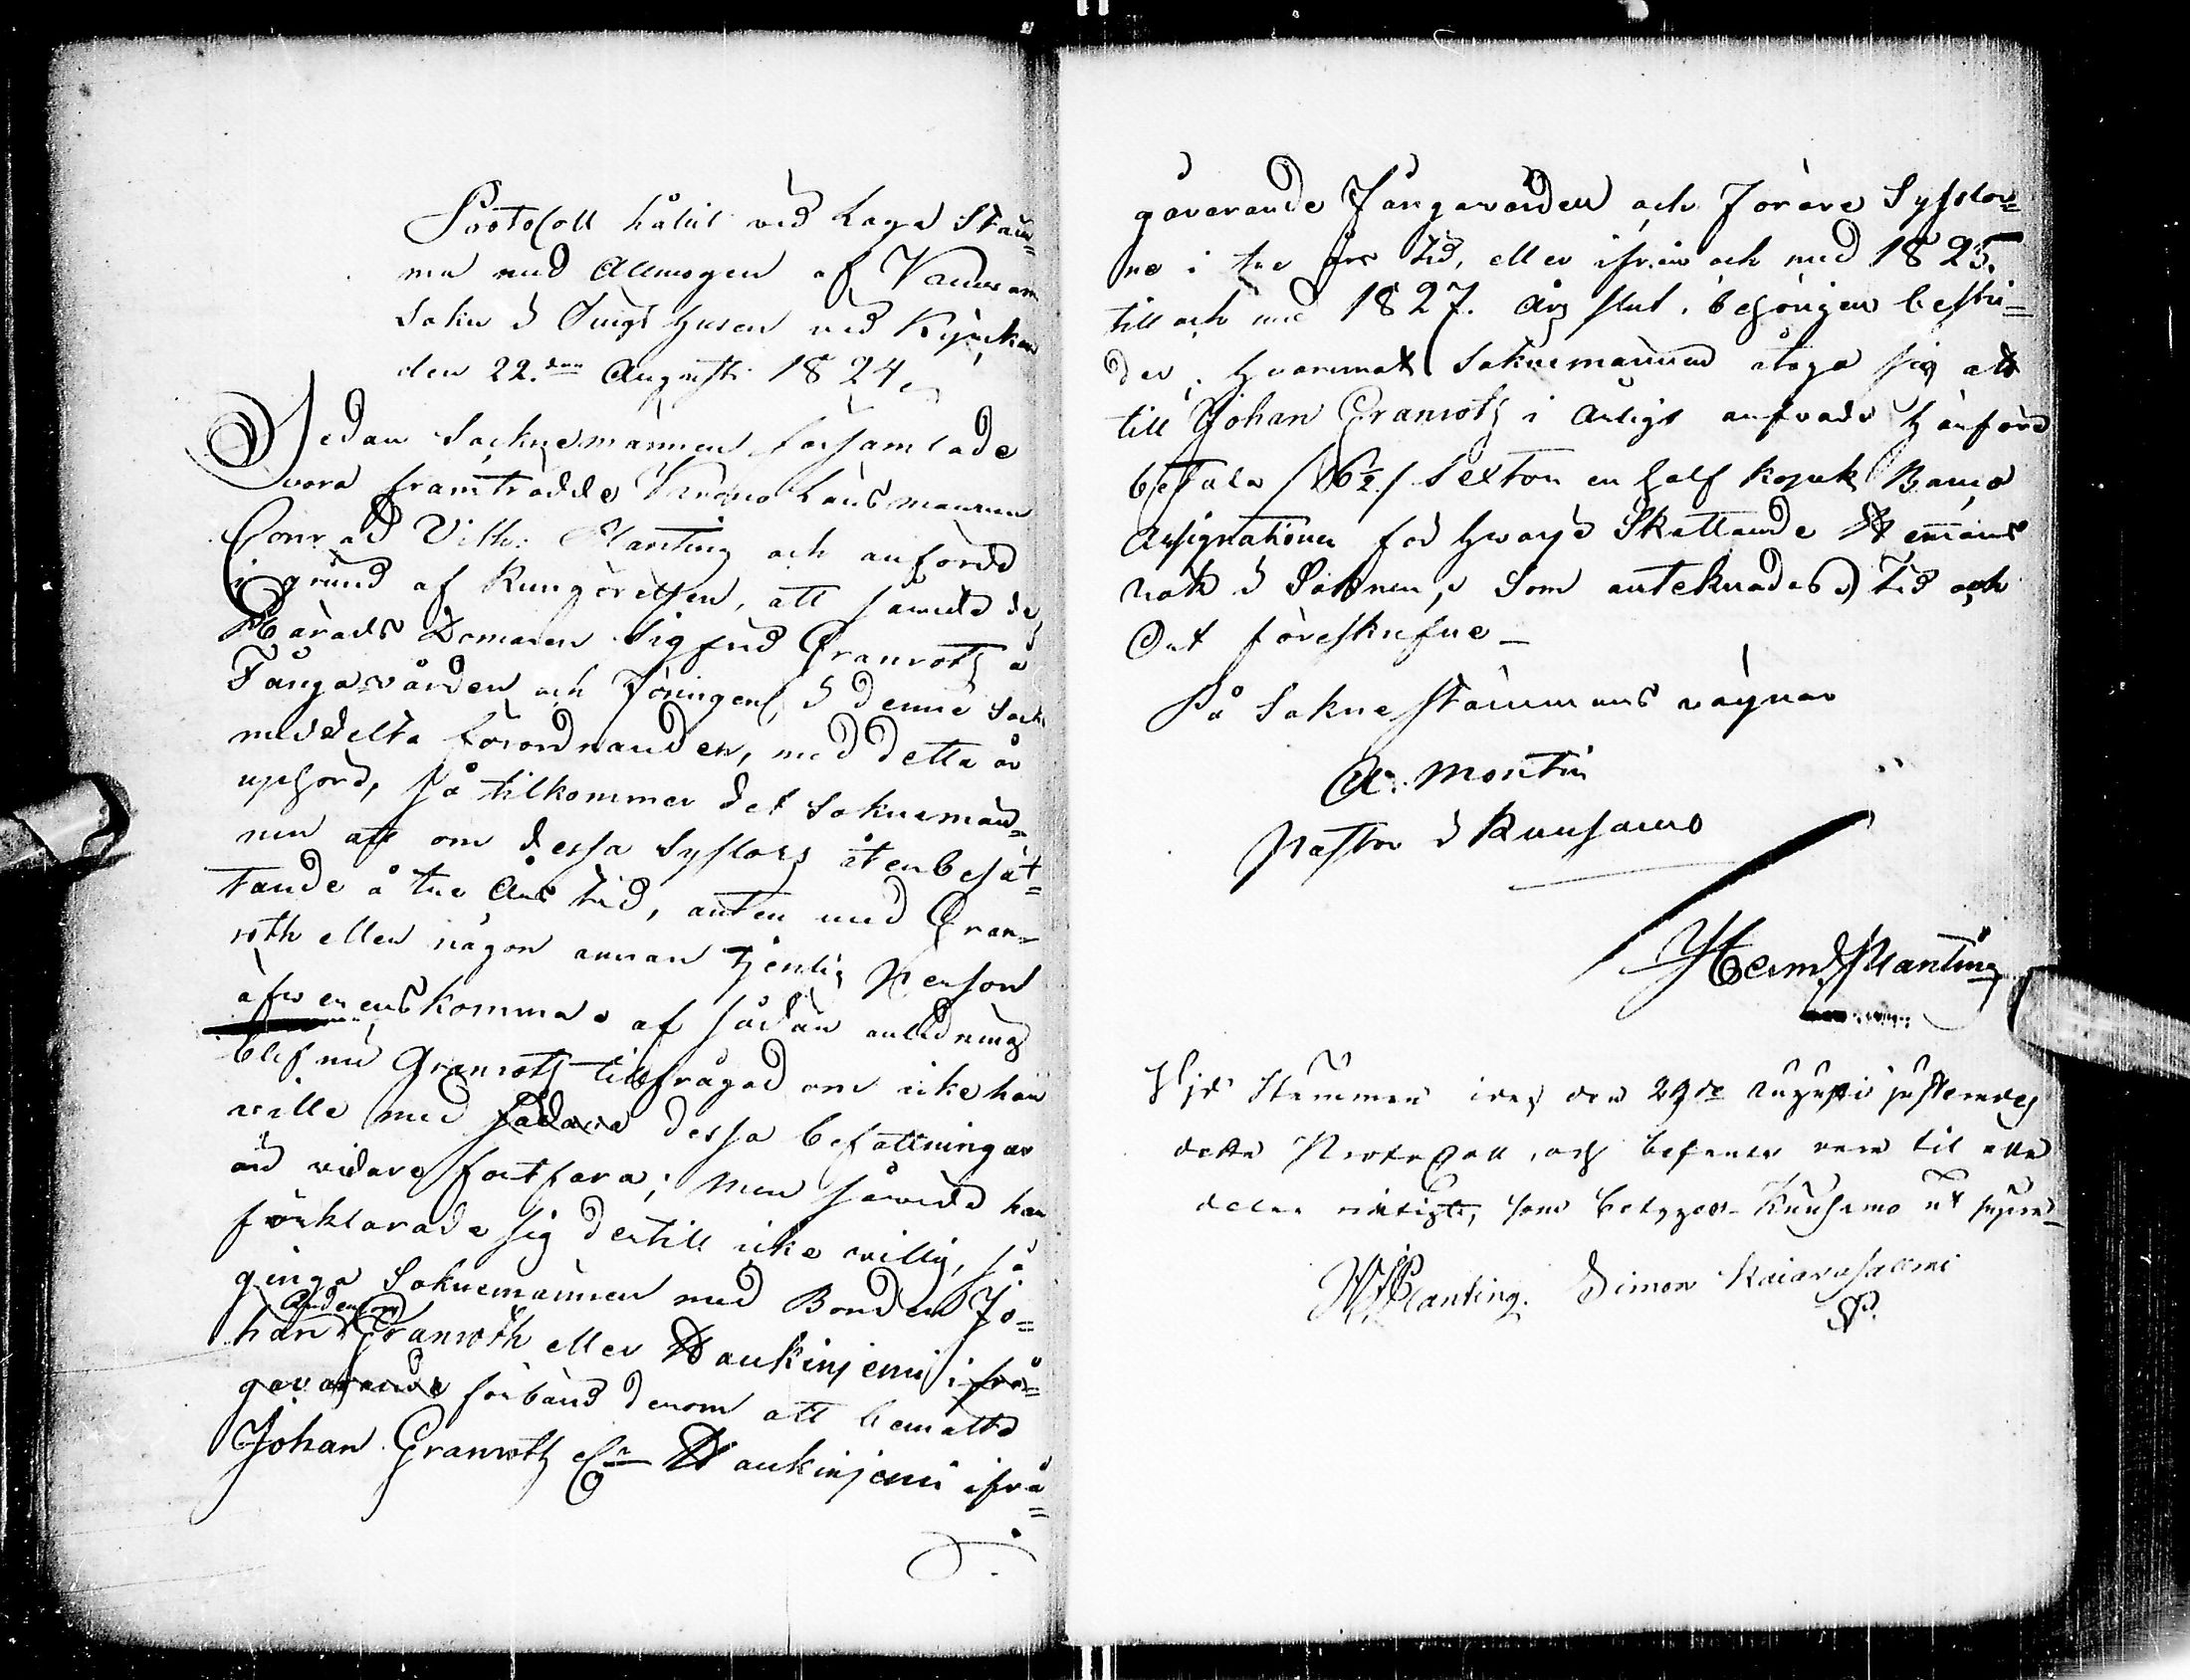 Protocoll hållit vid Laga Stäm=
ma med Allmogen af Kuusamo
Sokn i Tings Husen vid Kyrckan
den 22.dra Augusti 1824.
Sedan Socknemännen församlade
vora framträdde Krono Länsmannen
Conrad Vilh: Planting och anförde
i grund af Kungörelsen, att såmedelst
Härads Domaren Sigfrid Granroth å
Fångavården och Föringen i denne Sockn
meddelta förordnanden, med detta år
uphörd, så tilkommer det Soknemän=
nen att om dessa Sysslors återbesät=
tande å tre Års tid, anten med Gran=
roth eller någon annan tjenlig Person
öfverenskomma. af sådan anledning
blef nu Granroth tillfrågad om icke han
ville med sådane dessa befattningar
än vidare fortfara; Men såvida han
förklarade sig dertill icke villig, så
ginga Soknemännen med Bonden Jo=
Andersson
han Granroth eller Haukinjemi ifrå=
gavarande förbund derom att bemälte
Johan Granroth Eller Haukinjemi ifrå=
gavarande Fångavården och Förare Sysslor=
ne i tre års tid, eller ifrån och med 1825.
till och med 1827. Års slut, behörigen bestri=
der, hvaremot Soknemännen åtoga sig att
till Johan Granroth i Årligt anfvode härföre
betala /16½/ Sexton en half Kopek Banco
Assignationer för hvarje Skattande Hemmans
rök i Soknen, Som antecknades Tid och
Ort föreskrefne _
På Sokne Stämmans vägnar
A: Montin
Pastor i Kuusamo
Herm: Planting
Vid Stämman idag den 29de Augusti justerades
detta Protocoll, och befanns vara til alla
delar riktigt, som betygas. Kuusamo ut supra_
H: Planting. Simon Kaiarusalmi